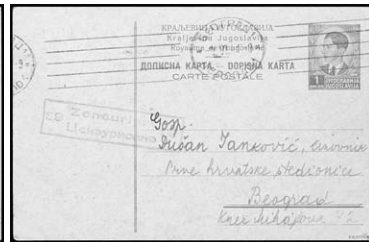 КРАЉЕВИНА ЈУГОСЛАВИЈА
Kraljevina Jugoslavija
Royaume de Yougoslavie
ДОПИСНА КАРТА - DOPISNA KARTA
CARTE POSTALE
1
ЈУГОСЛАВИЈА
JUGOSLAVIJA
Zenzuri
Цензурисано
Gosp.
Dušan Janković, činovnik
Prve hrvatske štedionice
Beograd
Knez Mihajlova 42